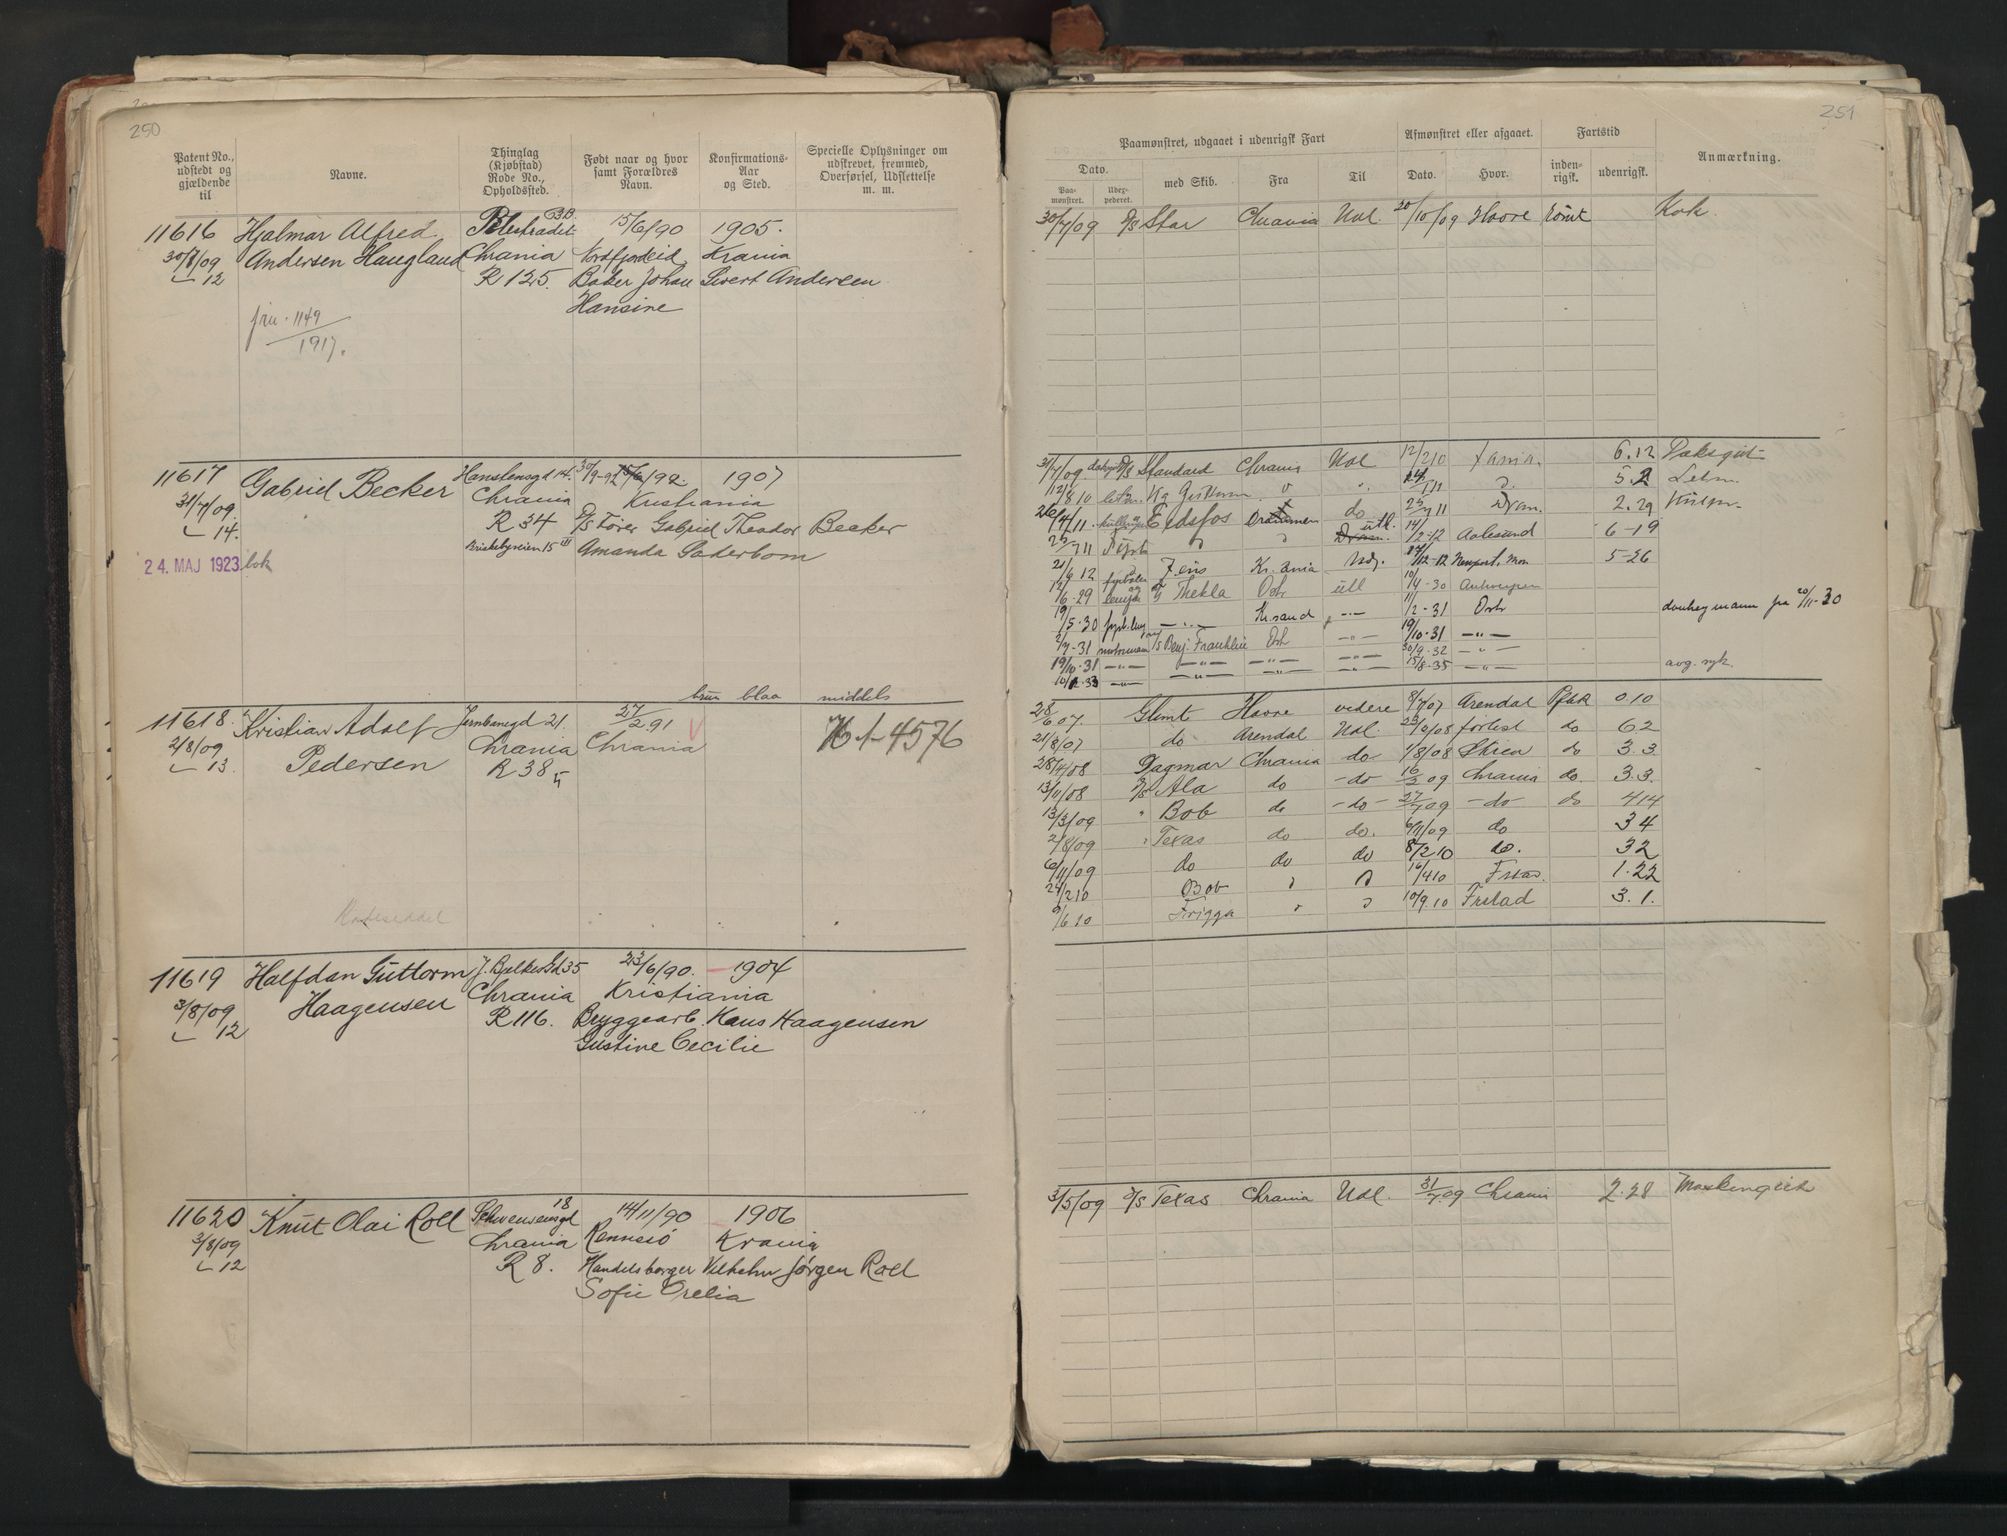 250
Patent No., udstedt og gjældende til
Navne.
Thinglag (Kjøbstad) Rode No., Opholdssted.
Født naar og hvor samt Forældres Navn.
Konfirmations-Aar og Sted.
Specielle Oplysninger om udskrevet, fremmed, Overførsel, Udslettelse m. m.
11616 Hjalmar Alfred Pilestrædet 15/6/90 1905.
30/7/09 Andersen Haugland Chrania Nordfjordeid Krania
12 R 125. Baker Johan Sivert Andersen
Hansine
fru. 1149
1917.
11617 Gabriel Becker 30/9-92 1907
31/7/09 Chrania Kristiania
14. R 34 D/S Fører Gabriel Theodor Becker
24. MAJ 1923 bok Briskebyveien 15 III Amanda Sōderbom
brun blaa middels
11618. Kristian Adolf Jernbanegd 21. 27/2.91
2/8/09 Pedersen Chrania Chrania
13. R 38
4576
11619 Halfdan Guttorm J. Bjelkesgd 35 23/6/90. 1904
3/8/09 Haagensen Chrania Kristiania
12 R 116. Bryggearb. Hans Haagensen
Gustine Cecilie
11620 Knut Olai Roll Schwensensgd 18 14/11/90 1906
3/8/09 Chrania Rennesö Krania
12 R 8. Handelsborger Vilhelm Jørgen Roll
Sofie Orelia
251
Paamønstret, udgaaet i udenrigsk Fart
Afmønstret eller afgaaet.
Fartstid
Anmærkning.
Dato.
Paa-mønstret.
Udex-pederet.
med Skib.
Fra
Til
Dato.
Hvor.
inden-rigsk.
udenrigsk.
30/7/09 D/S Star Chrania Udl. 20/10/09 Havre rømt Kok.
31/7/09 D/S Standard Chrania Udl 12/2 10 6.12 Dæksgut
12/8 10 5.2 Letm.
26/4/11. Eidsfos Drammen do 25/7 11 Dram. 2.29
25/7 11 utl. 14/2-12 Aalesund 6-19
21/6 12 Kr.ania Newport, Mon 5-26
12/6-29 Thekla Osl utl 10/4-30 Antwerpen
19/5-30 Kr.sand 11/2-31 Oslo donkeymann fra 20/11-30
2/7-31 motormann Benj. Franklin Osl 19/10-31
19/10-31 30/9-32
15/8-35 avg. syk.
28/6 07. Glimt Havre videre 8/7/07 Arendal Pftur 0.10
21/8/07 do Arendal Udl. forlist do 6.2
28/4/08 Dagmar Chrania do 1/8/08 Skien do 3.3
13/11/08 D/S Ala do do 16/2 09 Chrania do 3.3.
13/3/09 " Bob do do 27/7 09 do do 4.14
2/8/09 " Texas do do. 6/11/09 do 3 4
6/11/09 do do do 8/2 10 do. 3 2
24/2 10 Bob 16/4 10 Frstad. 1.22
9/6 10 Frigga 10/9.10 Frstad 3.1.
3/5/09 D/S Texas Chrania Udl. 31/7 09 Chrania 2.28 Maskingut